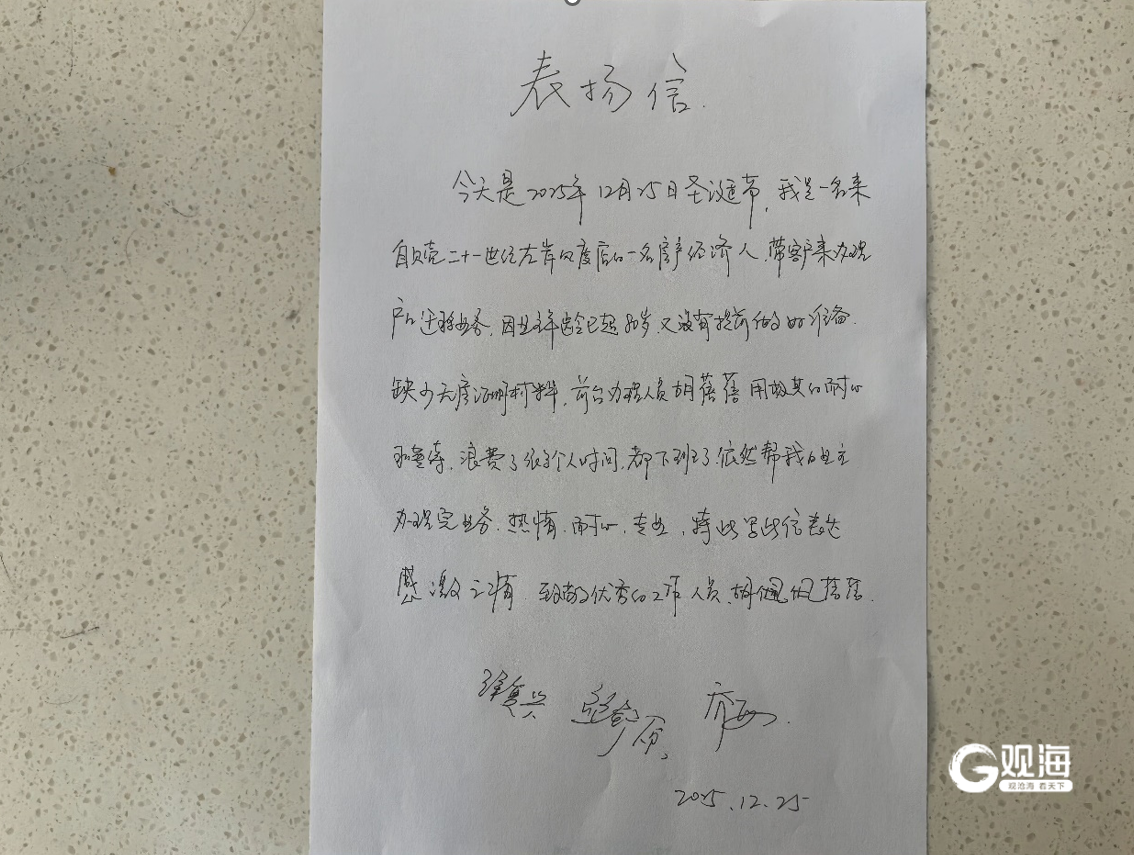 表扬信.
今天是2025年12月25日圣诞节,我是一名来
自贝壳二十一世纪左岸风度店的一名房产经济人,带客户来办理
户口迁移业务,因业主年龄已超80岁,又没有提前做多好准备.
缺少无房证明材料,前台办理人员胡蓓蓓用极其的耐心
和,浪费了很多个人时间,都下班了依然帮我的业主
办理完业务.热情.耐心.专业,特此写此信表达
感激之情.致敬优秀的工作人员,胡蓓蓓.
2025.12.25
G观海
观沧海 看天下